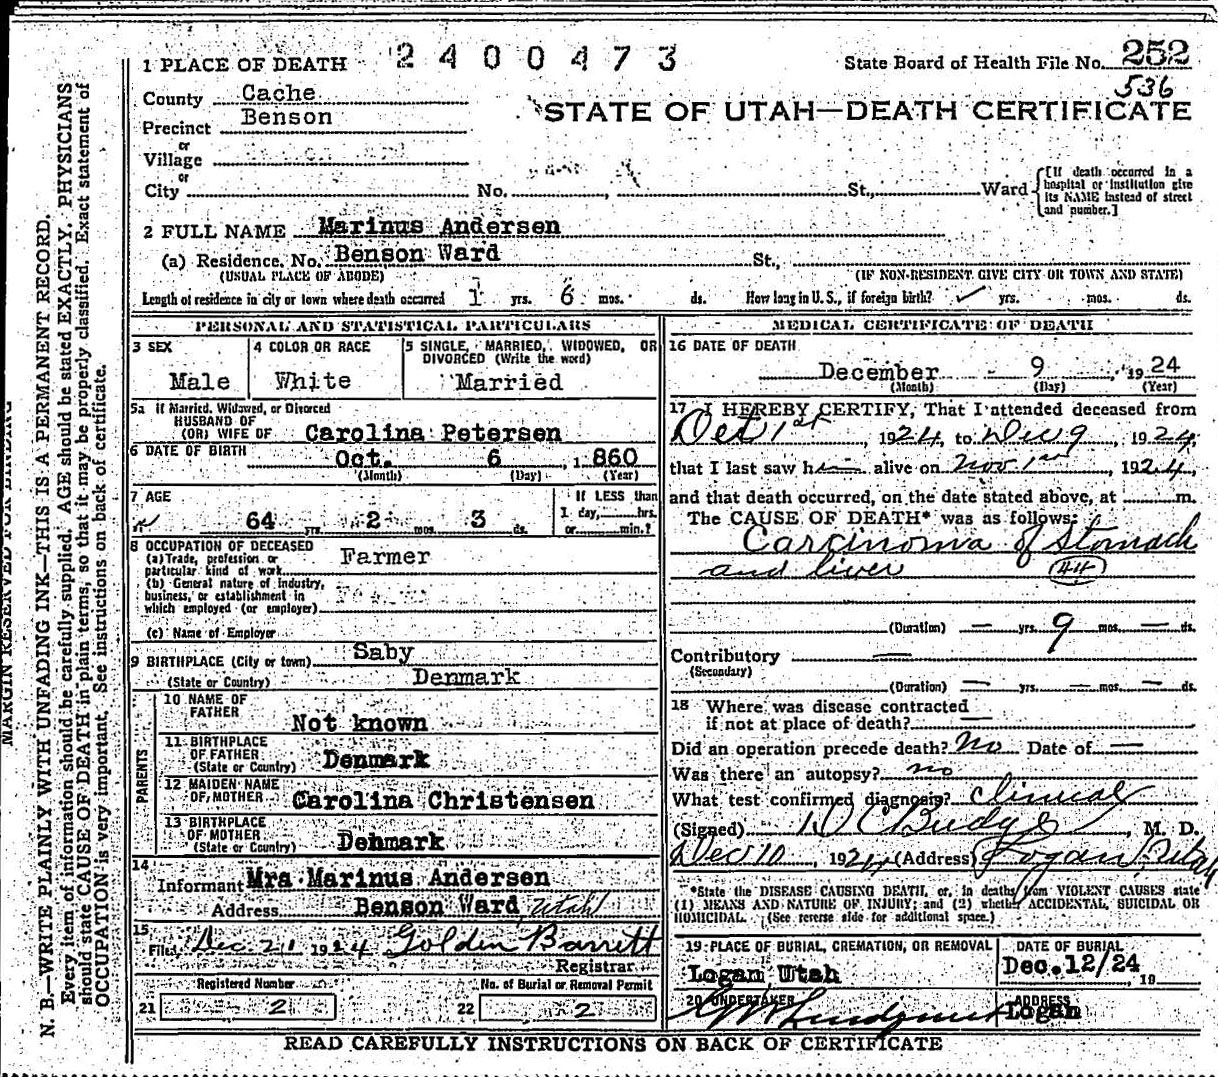 2400473
State Board of Health File No. 252
536
1 PLACE OF DEATH
County Cache
STATE OF UTAH—DEATH CERTIFICATE
Precinct Benson
or
Village
or
City No. St., Ward
[If death occurred in a hospital or institution give its NAME instead of street and number.]
2 FULL NAME Marinus Andersen
(a) Residence, No. Benson Ward St.,
(USUAL PLACE OF ABODE) (IF NON-RESIDENT GIVE CITY OR TOWN AND STATE)
Length of residence in city or town where death occurred 1 yrs. 6 mos. ds. How long in U. S., if foreign birth? ✓ yrs. mos. ds.
PERSONAL AND STATISTICAL PARTICULARS
3 SEX
Male
4 COLOR OR RACE
White
5 SINGLE, MARRIED, WIDOWED, OR
DIVORCED (Write the word)
Married
5a If Married, Widowed, or Divorced
HUSBAND OF
(OR) WIFE OF Carolina Petersen
6 DATE OF BIRTH Oct. 6, 1860
(Month) (Day) (Year)
7 AGE
64 yrs. 2 mos. 3 ds.
If LESS than
1 day, hrs.
or min.?
8 OCCUPATION OF DECEASED
(a) Trade, profession or
particular kind of work Farmer
(b) General nature of industry,
business, or establishment in
which employed (or employer)
(c) Name of Employer
9 BIRTHPLACE (City or town) Saby
(State or Country) Denmark
PARENTS
10 NAME OF
FATHER Not known
11 BIRTHPLACE
OF FATHER
(State or Country) Denmark
12 MAIDEN NAME
OF MOTHER Carolina Christensen
13 BIRTHPLACE
OF MOTHER
(State or Country) Denmark
14
Informant Mrs Marinus Andersen
Address Benson Ward Utah
15
Filed Dec. 21 1924 Golden Barrett
Registrar
Registered Number
21 2
No. of Burial or Removal Permit
22 2
MEDICAL CERTIFICATE OF DEATH
16 DATE OF DEATH
December 9, 1924
(Month) (Day) (Year)
17 I HEREBY CERTIFY, That I attended deceased from
Oct 1st, 1924, to Dec 9, 1924,
that I last saw him alive on Nov 1st, 1924,
and that death occurred, on the date stated above, at m.
The CAUSE OF DEATH* was as follows:
Carcinoma of Stomach
and liver 44
(Duration) — yrs. 9 mos. — ds.
Contributory —
(Secondary)
(Duration) — yrs. — mos. — ds.
18 Where was disease contracted
if not at place of death? —
Did an operation precede death? No Date of —
Was there an autopsy? no
What test confirmed diagnosis? Clinical
(Signed) D C Budge, M. D.
Dec 10, 1924 (Address) Logan Utah
*State the DISEASE CAUSING DEATH, or, in deaths from VIOLENT CAUSES state
(1) MEANS AND NATURE OF INJURY; and (2) whether ACCIDENTAL, SUICIDAL OR
HOMICIDAL. (See reverse side for additional space.)
19 PLACE OF BURIAL, CREMATION, OR REMOVAL
Logan Utah
DATE OF BURIAL
Dec. 12/24 19
20 UNDERTAKER
ADDRESS
Logan
READ CAREFULLY INSTRUCTIONS ON BACK OF CERTIFICATE
MARGIN RESERVED FOR BINDING
N. B.—WRITE PLAINLY WITH UNFADING INK—THIS IS A PERMANENT RECORD.
Every item of information should be carefully supplied. AGE should be stated EXACTLY. PHYSICIANS
should state CAUSE OF DEATH in plain terms, so that it may be properly classified. Exact statement of
OCCUPATION is very important. See instructions on back of certificate.